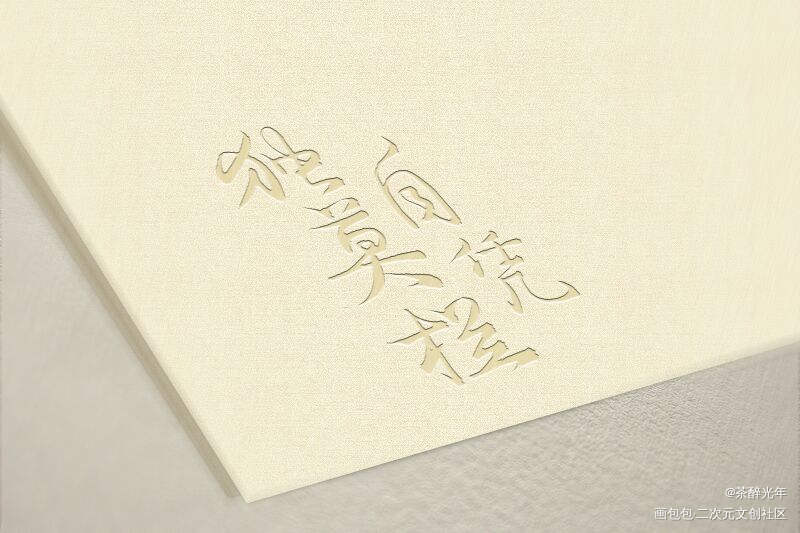 独自
莫凭
栏
@茶醉光年
画包包.二次元文创社区